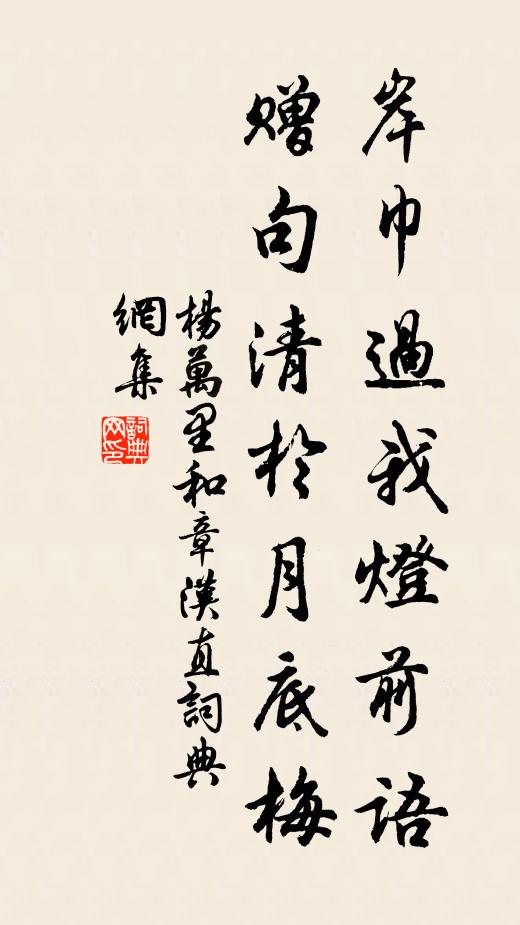 岸巾過我燈前語
贈句清於月底梅
楊萬里和章漢直詞典
網集
詞典
网印